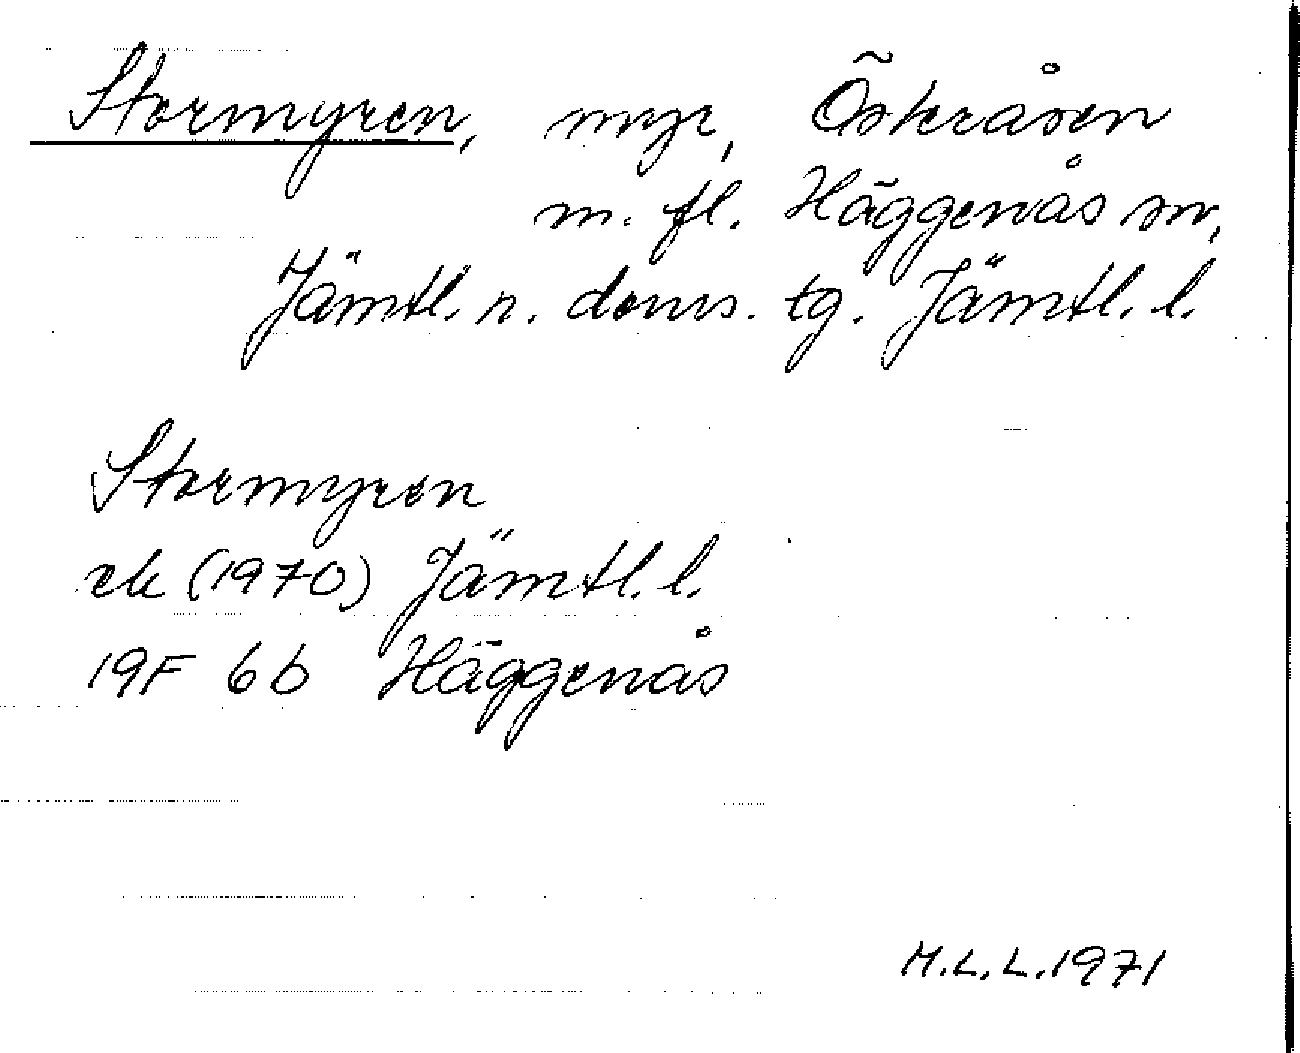 Stormyren, myr, Österåsen
m. fl. Häggenås sn,
Jämtl. n. doms. tg. Jämtl. l.
Stormyren
ek (1970) Jämtl. l.
19F 6b Häggenås
M.L.L. 1971